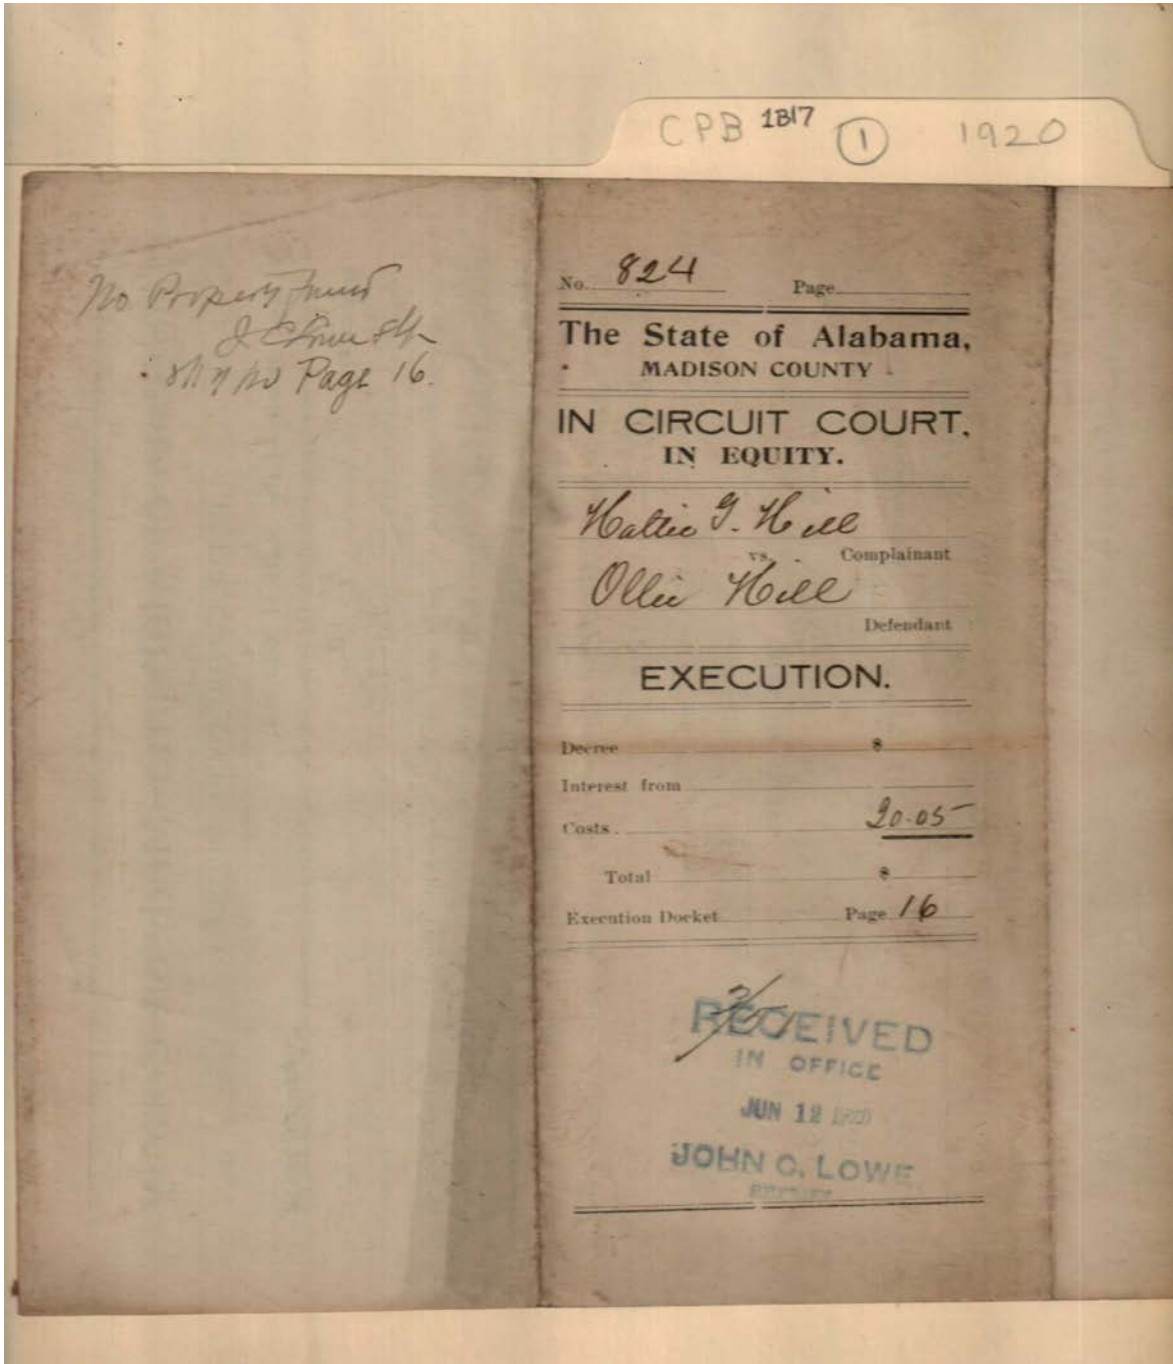 CPB 1B17 1 1920
No Property found
J C Lowe Shff
Page 16.
No. 824 Page
The State of Alabama,
MADISON COUNTY
IN CIRCUIT COURT,
IN EQUITY.
Hattie G. Hill
vs. Complainant
Ollie Hill
Defendant
EXECUTION.
Decree $
Interest from
Costs. 20.05
Total $
Execution Docket Page 16
RECEIVED
IN OFFICE
JUN 12 1920
JOHN C. LOWE
SHERIFF